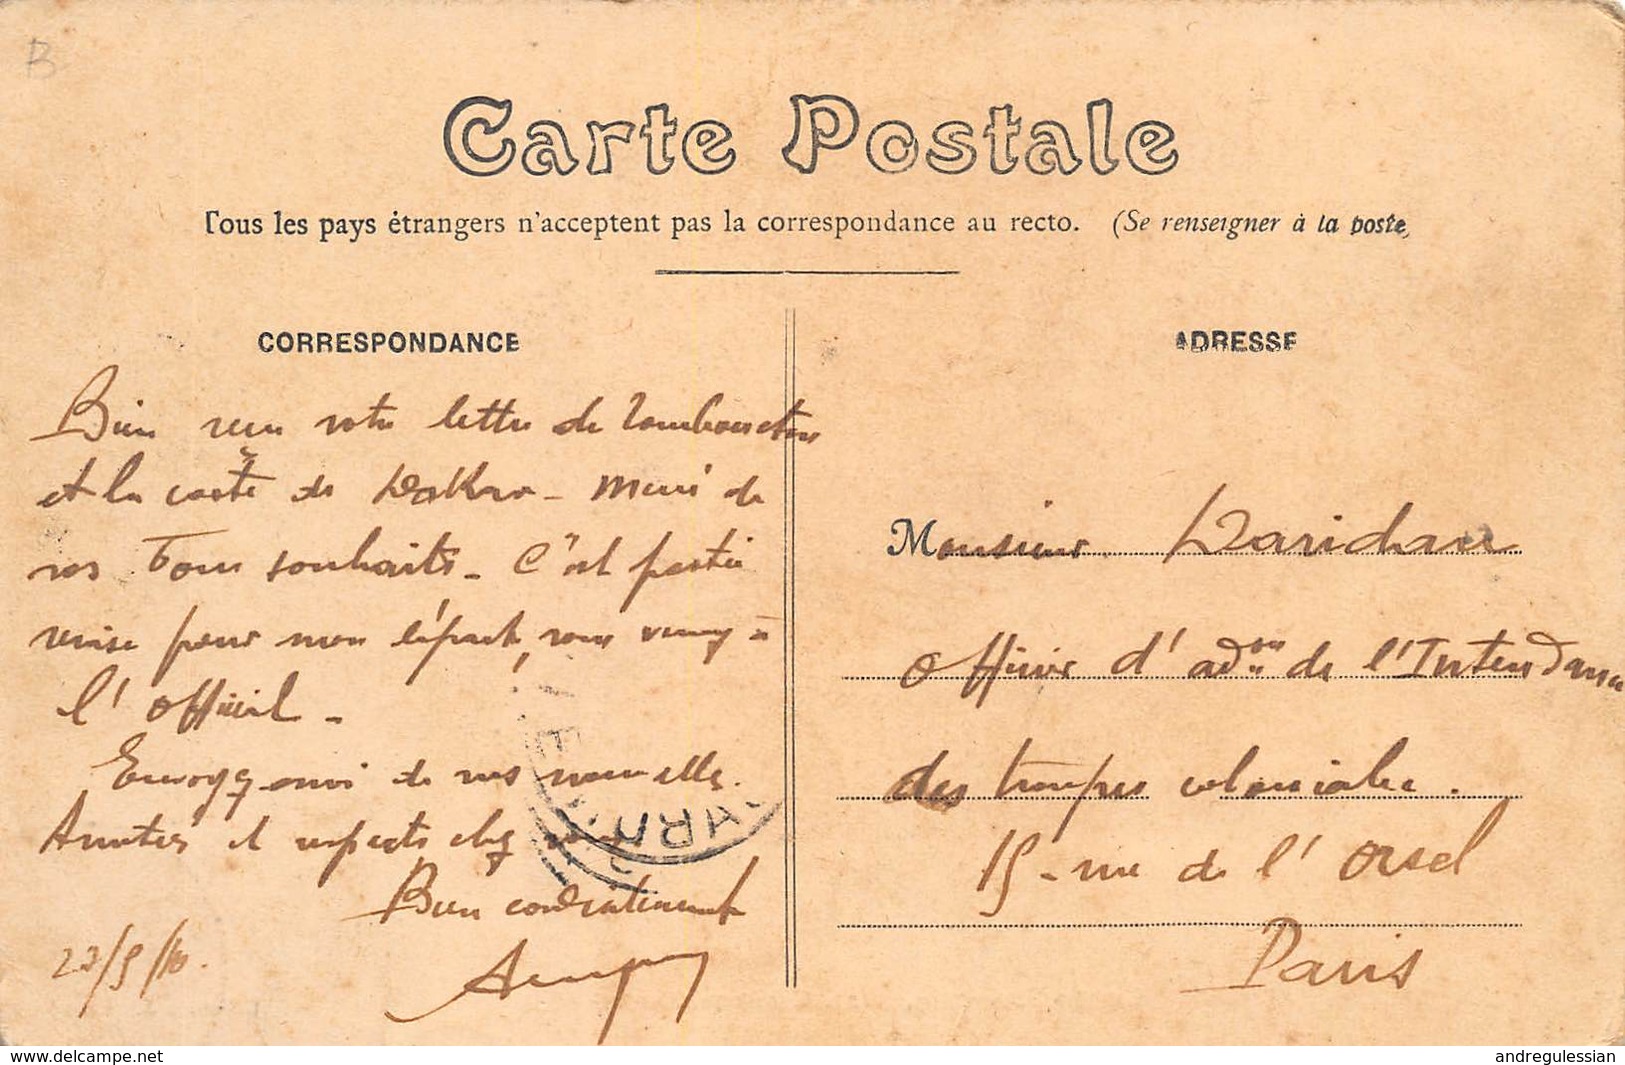 B
Carte Postale
Tous les pays étrangers n'acceptent pas la correspondance au recto. (Se renseigner à la poste
CORRESPONDANCE
Bien reçu votre lettre de Tombouctou
et la carte de Dakar - Merci de
vos bons souhaits - C'est partie
remise pour mon épack, vous verrez à
l'officiel -
Envoyez moi de vos nouvelles.
Amitiés et respects chez vous
Bien cordialement
22/5/10.
ADRESSE
Monsieur Daridan
Officier d'adon de l'Intendance
des troupes coloniales.
15 - rue de l'Orsel
Paris
www.delcampe.net
andregulessian